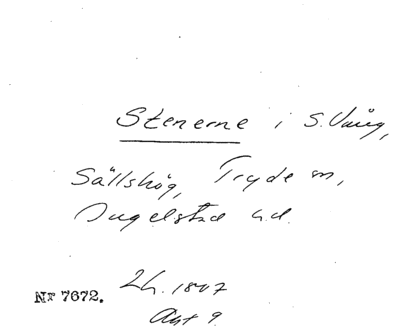 Stenerne i S. Vång,
Sällshög, Tryde sn,
Ingelstad hd.
Nr 7672. Lh. 1807
Akt 9